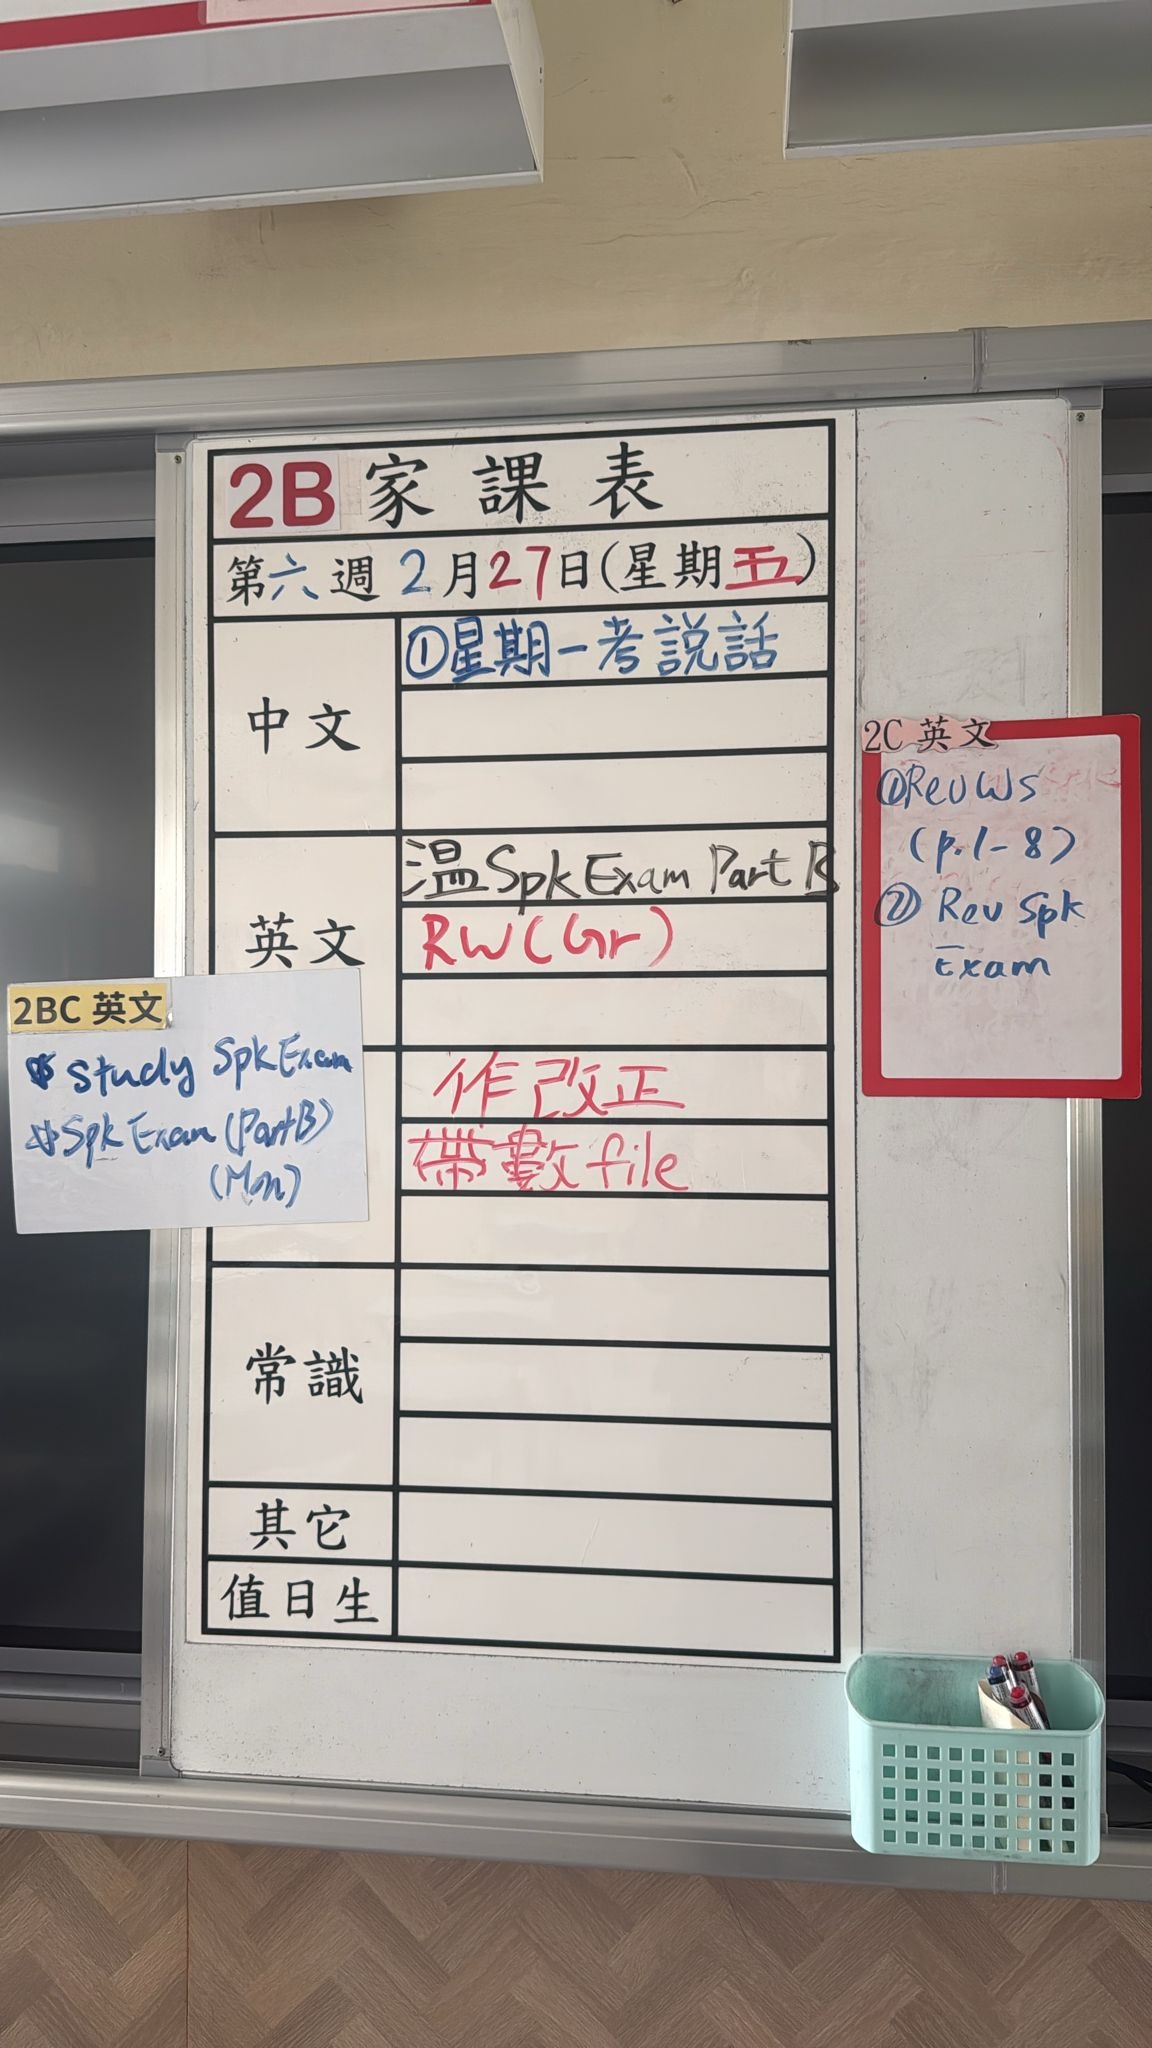 2B 家課表
第六週 2月27日(星期五)
中文
①星期一考說話
英文
温 Spk Exam Part B
RW (Gr)
作改正
帶數file
常識
其它
值日生
2BC 英文
Study Spk Exam
Spk Exam (Part B)
(Mon)
2C 英文
①Rev WS
(p.1-8)
② Rev Spk
Exam